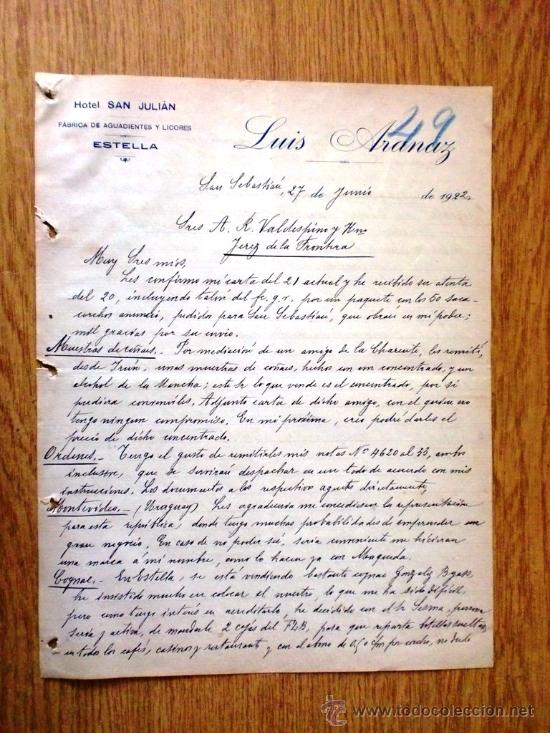 Hotel SAN JULIÁN
FÁBRICA DE AGUADIENTES Y LICORES
ESTELLA
Luis Aranaz
49
San Sebastián, 27 de Junio de 1922
Sres A. R. Valdespino y Hno
Jerez de la Frontera
Muy Sres mios,
Les confirmo mi carta del 21 actual y he recibido su atenta
del 20, incluyendo talon del fc. g.v. por un paquete con los 60 saca-
corchos anuncio, pedidos para San Sebastián, que obran en mi poder;
mil gracias por su envio.
Muestras de coñacs.- Por mediación de un amigo de la Charente, les remití,
desde Irun, unas muestras de coñacs, hechos con un concentrado, y un
alcohol de la Mancha; este Sr lo que vende es el concentrado, por si
pudiera convenirles. Adjunto carta de dicho amigo, con el quien no
tengo ningun compromiso. En mi próxima, creo podré darles el
precio de dicho concentrado.
Ordenes.- Tengo el gusto de remitirles mis notas Nº 4620 al 33, ambos
inclusive, que se servirán despachar en un todo de acuerdo con mis
instrucciones. Los documentos a los respectivos agentes directamente,
Montevideo.- (Uruguay) Les agradeceria me concedieran la representación
para esta república, donde tengo muchas probabilidades de emprender un
gran negocio. En caso de no poder ser, seria conveniente me hicieran
una marca á mi nombre, como lo hacen ya con
Cognac.- En Estella, se esta vendiendo bastante cognac Gonzalez Byass,
he insistido mucho en colocar el nuestro, lo que me ha sido dificil,
pero como tengo interés en acreditarlo, he decidido con el Sr Lerma, persona
seria y activa, de mandarle 2 cajas del, para que reparta botellas sueltas
en todos los cafés, casinos y restaurant y con el abono de
todocoleccion
www.todocoleccion.net